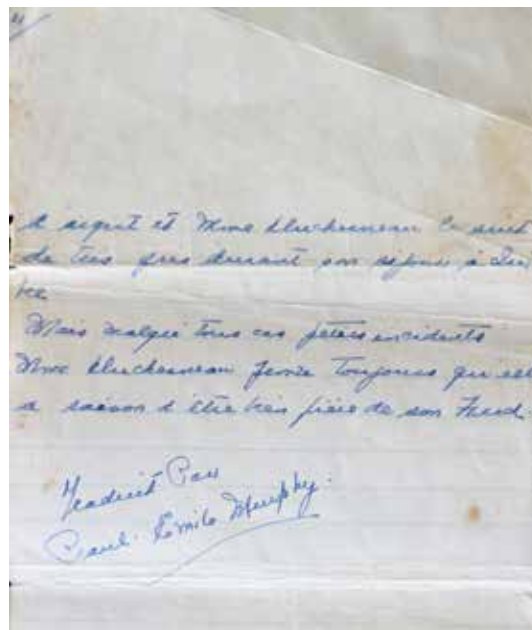 d'argent et Mme Duchesneau le suit
de très près durant son séjour à
Mais malgré tous ces petits incidents
Mme Duchesneau pense toujours qu'elle
a raison d'être très fière de son
Traduit Par
Paul-Emile Murphy.